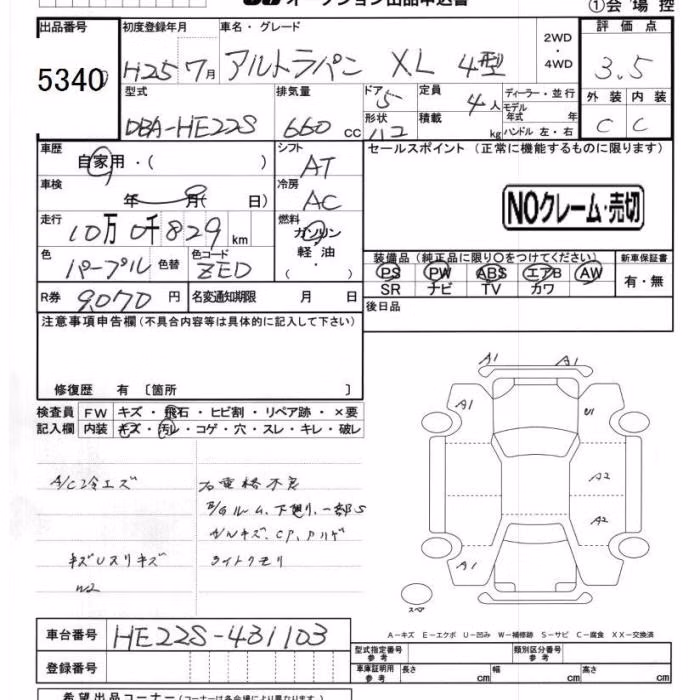 オークション出品申込書
①会場控
出品番号 初度登録年月 車名・グレード 2WD ・ 4WD 評価点
5340 H25 7月 アルトラパン XL 4型 3.5
型式 排気量 ドア 定員 ディーラー・並行 外装 内装
DBA-HE22S 660cc 5 4人 モデル年式 年 C C
形状 積載 kg ハンドル 左・右
車歴 シフト セールスポイント (正常に機能するものに限ります)
自家用・( ) AT
車検 冷房
年 月( 日) AC
NOクレーム・売切
走行 燃料
10万0千829km ガソリン
軽油
( ・ )
色 色替 色コード 装備品 (純正品に限り○をつけてください) 新車保証書
パープル ZED PS PW ABS エアB AW 有・無
SR ナビ TV カワ
R券 9070円 名変通知期限 月 日 後日品
注意事項申告欄 (不具合内容等は具体的に記入して下さい)
修復歴 有 〔箇所 〕
検査員 FW キズ・飛石・ヒビ割・リペア跡・×要
記入欄 内装 キズ・汚レ・コゲ・穴・スレ・キレ・破レ
A1 A1
A1 U1
A2
A2
A1
A/C冷エズ
下廻り、一部S
A/Wキズ、CP、
キズUスリキズ ライトクモリ
W2
スペア
A−キズ E−エクボ U−凹み W−補修跡 S−サビ C−腐食 XX−交換済
車台番号 HE22S-431103
型式指定番号 参考 類別区分番号 参考
登録番号 車庫証明用 参考 長さ cm 幅 cm 高さ cm
希望出品コーナー (コーナーは各会場により異なります)